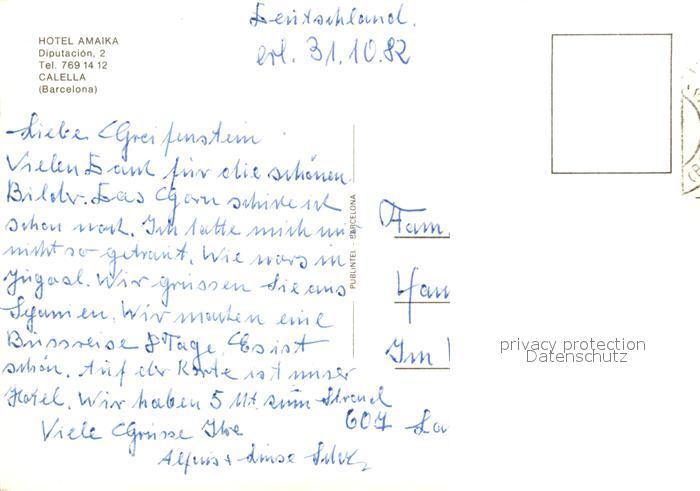 Deutschland.
erl. 31.10.82
HOTEL AMAIKA
Diputación, 2
Tel. 769 14 12
CALELLA
(Barcelona)
Liebe Greifenstein
Vielen Dank für die schönen
Bilder. Das Garn schicke ich
schon noch. Ich hatte mich nur
nicht so getraut. Wie wars in
Jugosl. Wir grüssen Sie aus
Spanien. Wir machen eine
Busreise 8 Tage. Es ist
schön. Auf der Karte ist unser
Hotel. Wir haben 5 Mt. zum Strand
Viele Grüsse Ihre
Alfons +
PUBLINTEL - BARCELONA
Fam.
Im
607
privacy protection
Datenschutz